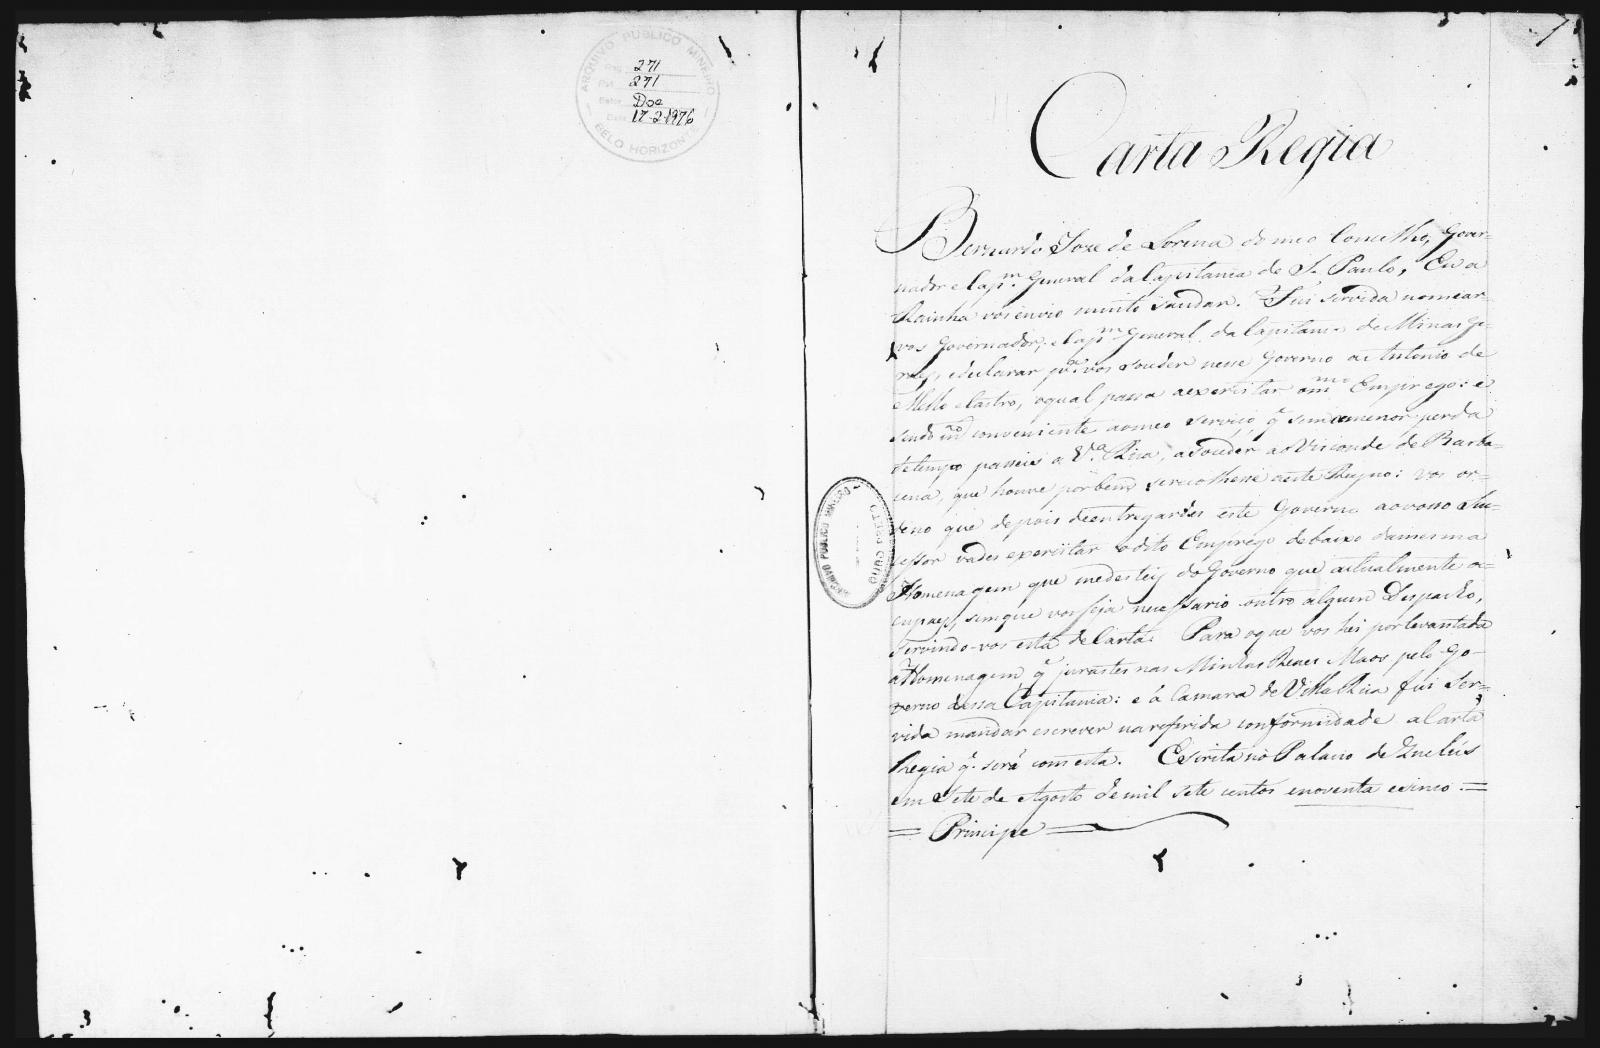 ARQUIVO PUBLICO MINEIRO
271
271
Doc
17-2-1976
BELO HORIZONTE
Carta Regia
Bernardo Joze de Lorena do meo Concelho, Gover=
nador e Cap.m General da Capitania de S. Paulo, Eu a
Rainha vos envio muito saudar. Fui servida nomear
vos Governador, e Cap.m General da Capitania de Minas Ge-
raes, e declarar p.a vos soceder nesse Governo a Antonio de
Mello e Castro, o qual passa a exercitar o m.mo Emprego: e
sendo m.to conveniente ao meo serviço, q̃ sem a menor perda
de tempo passeis a V.a Rica, a soceder ao Visconde de Barba-
cena, que houve por bem se recolhesse a este Reyno: vos or-
deno que depois de entregardes este Governo ao vosso Su-
cessor vades exercitar o dito Emprego debaixo da mesma
Homenagem que me destes do Governo que actualmente o-
cupaes, sem que vos seja necessario outro algum Despacho,
servindo-vos esta de Carta: Para o que vos hei por levantada
a Homenagem q̃ jurastes nas Minhas Reaes Maos pelo Go-
verno dessa Capitania: e à Camara de Villa Rica fui Ser=
vida mandar escrever na referida conformidade a Carta
Regia q̃ será com esta. Escrita no Palacio de Queluz
em Sete de Agosto de mil sete centos e noventa e cinco =
= Principe =
ARQUIVO PUBLICO MINEIRO
OURO PRETO